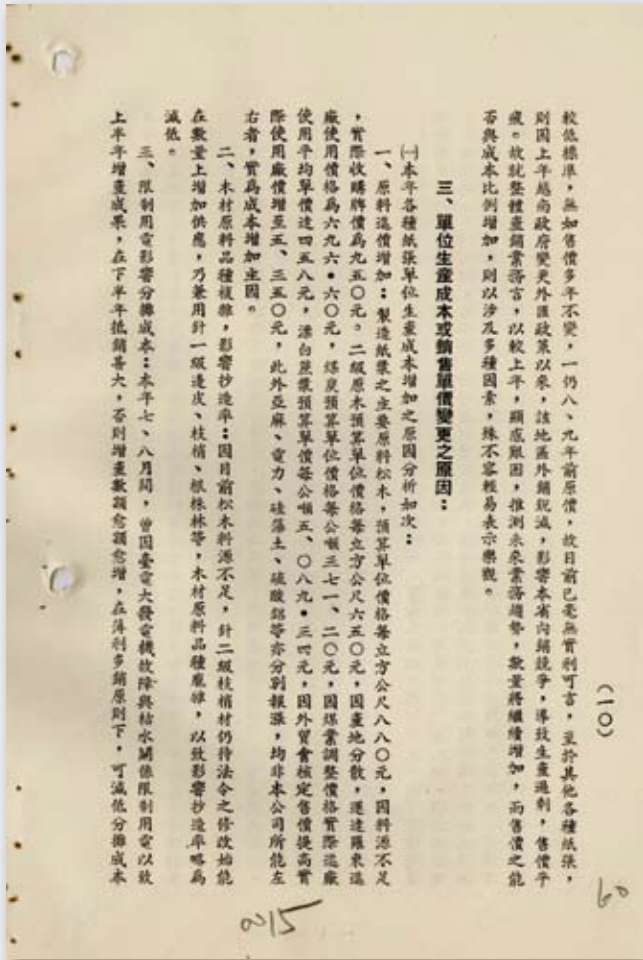 (一〇)
較低標準，無如售價多年不變，一仍八、九年前原價，故目前已毫無實利可言，至於其他各種紙張，
則因上年越南政府變更外匯政策以來，該地區外銷銳減，影響本省內銷競爭，導致生產過剩，售價平
疲。故就整體產銷業務言，以較上年，顯感艱困，推測未來業務趨勢，數量將繼續增加，而售價之能
否與成本比例增加，則以涉及多種因素，殊不容輕易表示樂觀。
三、單位生產成本或銷售單價變更之原因：
㈠本年各種紙張單位生產成本增加之原因分析如次：
一、原料造價增加：製造紙漿之主要原料松木，預算單位價格每立方公尺八八〇元，因料源不足
，實際收購牌價為九五〇元。二級原木預算單位價格每立方公尺六五〇元，因產地分散，運達羅東造
廠使用價格為六九六•六〇元，煤炭預算單位價格每公噸三七一、二〇元，因煤業調整價格實際造廠
使用平均單價達四五八元，漂白蔗漿預算單價每公噸五、〇八九•三四元，因外貿會核定售價提高實
際使用廠價增至五、三五〇元，此外亞麻、電力、硅藻土、硫酸鋁等亦分別報漲，均非本公司所能左
右者，實為成本增加主因。
二、木材原料品種複雜，影響抄造率：因目前松木料源不足，針二級枝梢材仍待法令之修改始能
在數量上增加供應，乃兼用針一級邊皮、枝梢、根株林等，木材原料品種龐雜，以致影響抄造率略為
減低。
三、限制用電影響分攤成本：本年七、八月間，曾因臺電大發電機故障與枯水關係限制用電以致
上半年增產成果，在下半年抵銷甚大，否則增產數額愈增，在薄利多銷原則下，可減低分攤成本
60